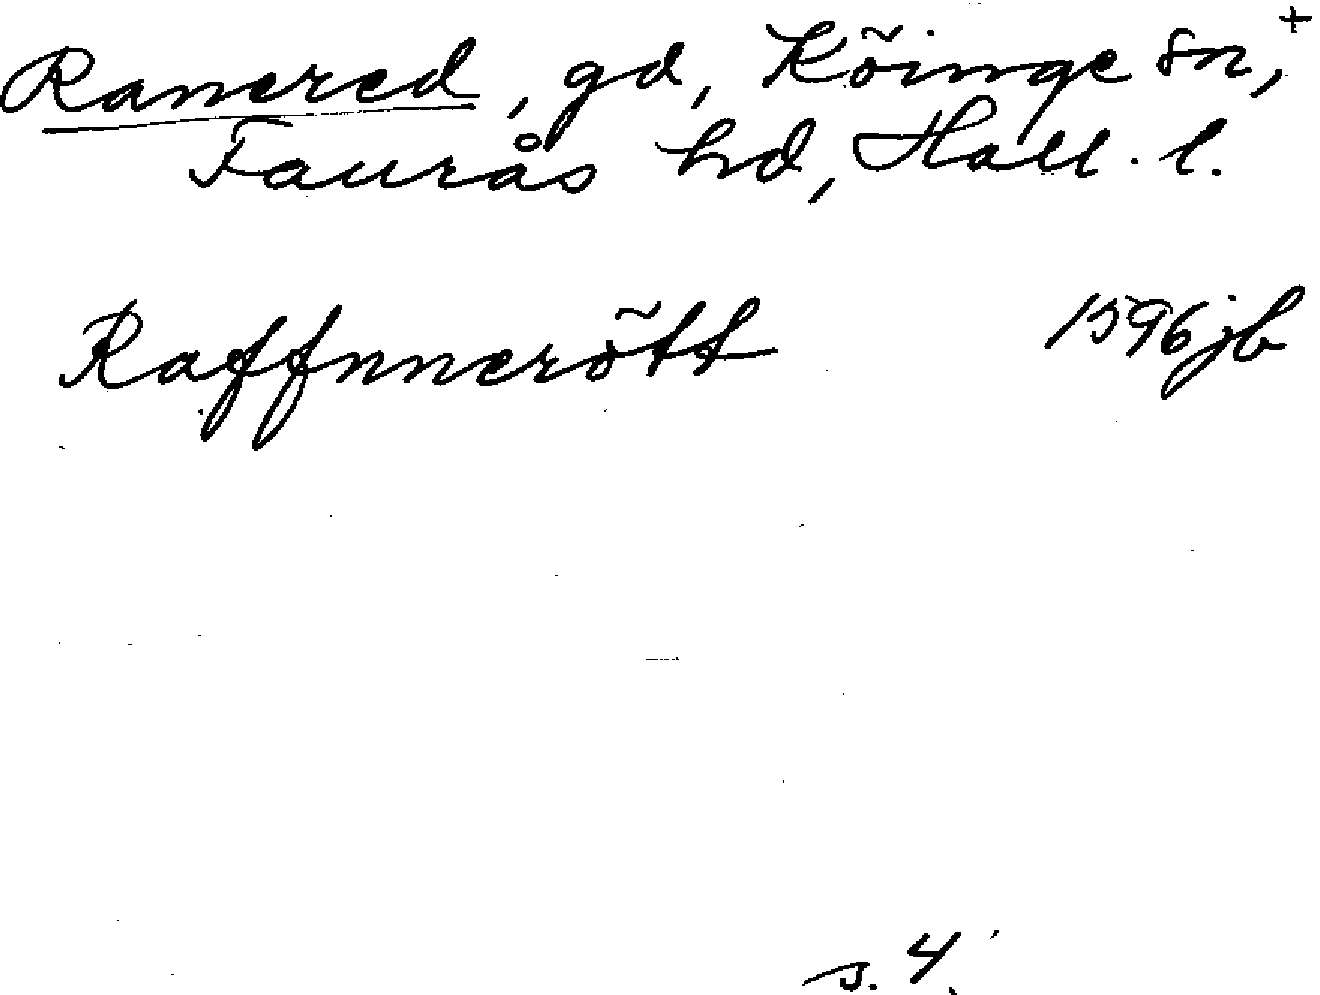 Ranered, gd, Köinge sn, +
Faurås hd, Hall. l.
Raffnnerött 1596 jb
s. 4.